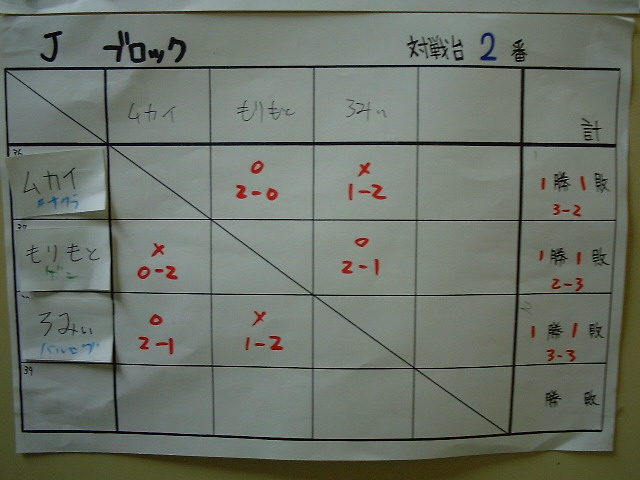 J ブロック 対戦台 2 番
ムカイ もりもと ろみい 計
ムカイ
0 2-0
x 1-2
1 勝 1 敗
3-2
もりもと
ゲン
x 0-2
0 2-1
1 勝 1 敗
2-3
ろみい
バルログ
0 2-1
x 1-2
1 勝 1 敗
3-3
39
勝 敗